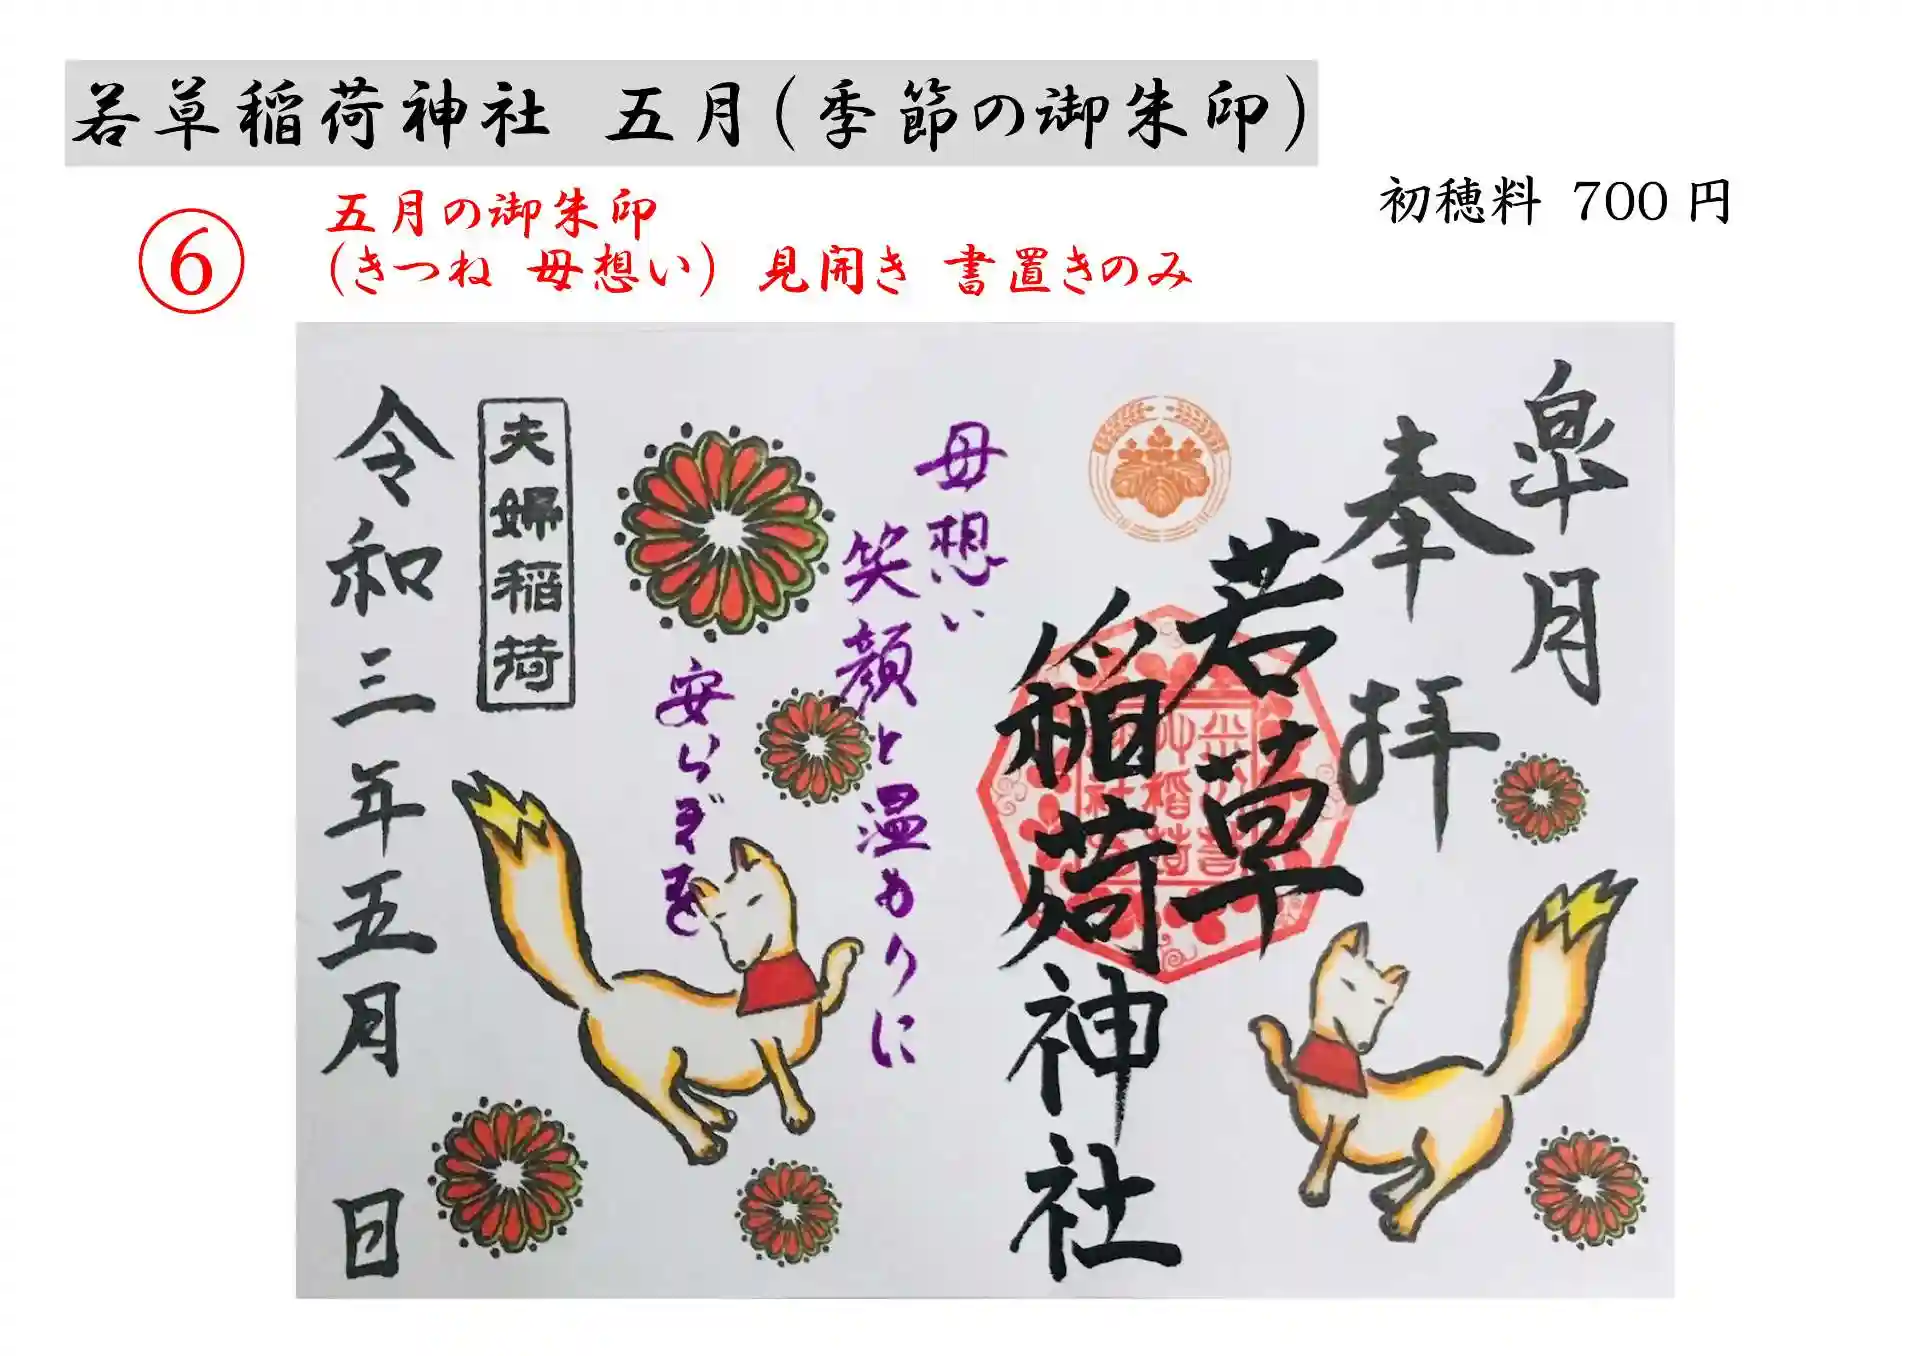 若草稲荷神社 五月(季節の御朱印)
初穂料 700 円
⑥
五月の御朱印
(きつね 母想い) 見開き 書置きのみ
皐月
奉拝
若草
稲荷神社
母想い
笑顔と温もりに
安らぎを
夫婦稲荷
令和三年五月 日